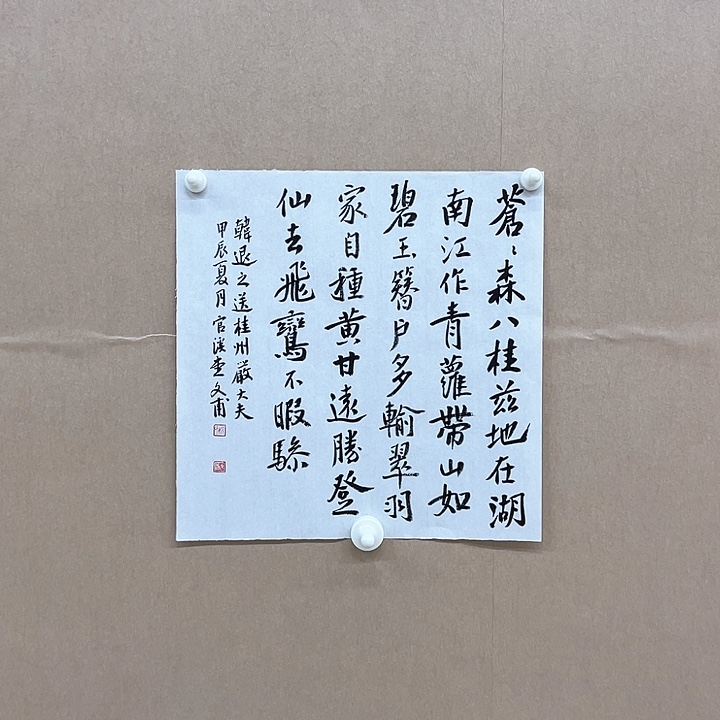 蒼〻森八桂兹地在湖
南江作青蘿帶山如
碧玉簪戶多輸翠羽
家自種黄甘遠勝登
仙去飛鸞不暇驂
韓退之送桂州嚴大夫
甲辰夏月官溪查文甫